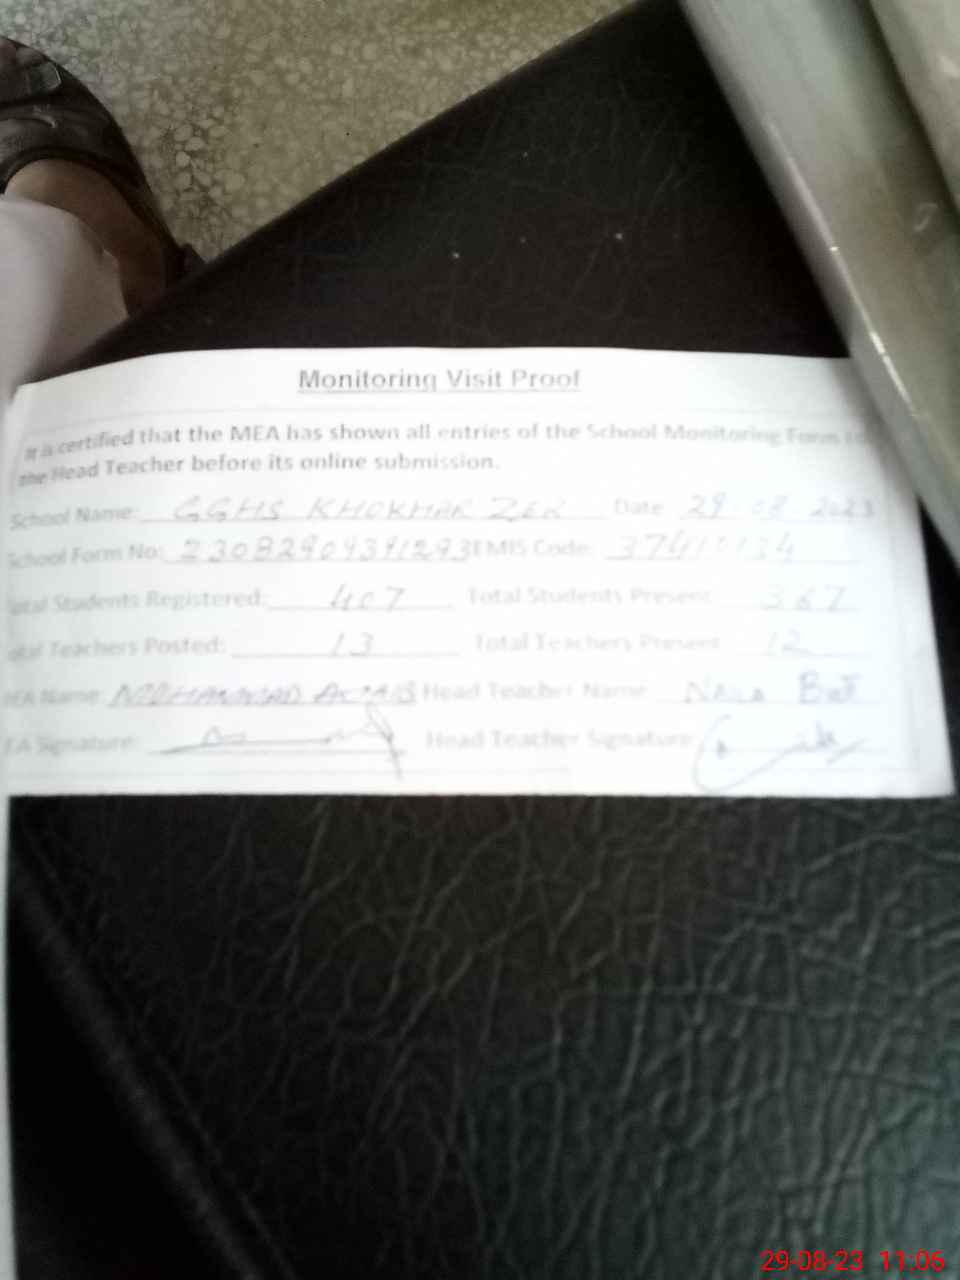 Monitoring Visit Proof
It is certified that the MEA has shown all entries of the School Monitoring Form to
the Head Teacher before its online submission.
School Name: GGHS KHOKHAR ZER Date 29 08 2023
School Form No: 23082909391293 EMIS Code: 37410134
Total Students Registered: 407 Total Students Present 367
Total Teachers Posted: 13 Total Teachers Present 12
MEA Name: MUHAMMAD Head Teacher Name Naila Butt
EA Signature: Head Teacher Signature:
29-08-23 11:06